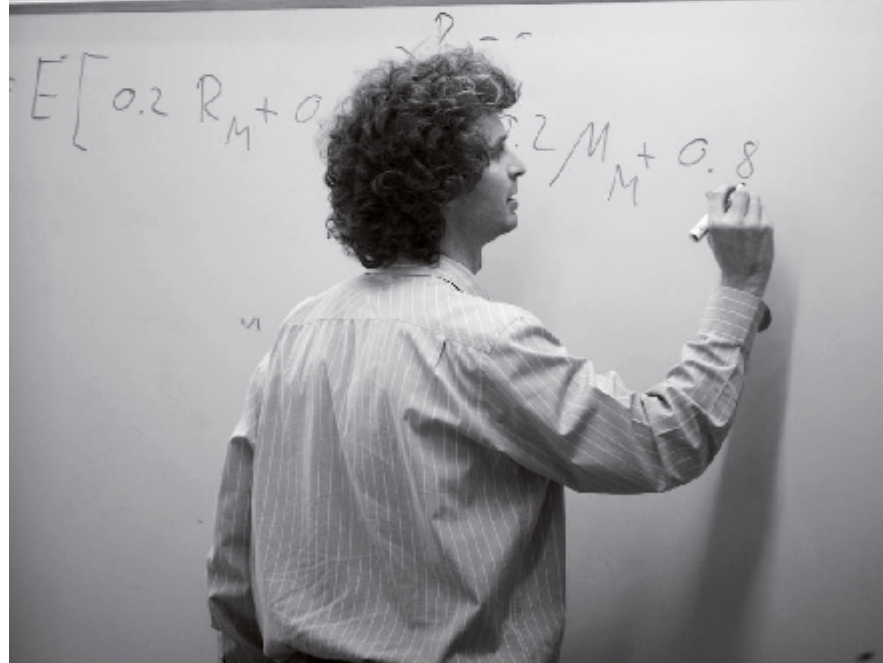 P --
= E[ 0.2 R_M + 0 .2 M_M + 0.8